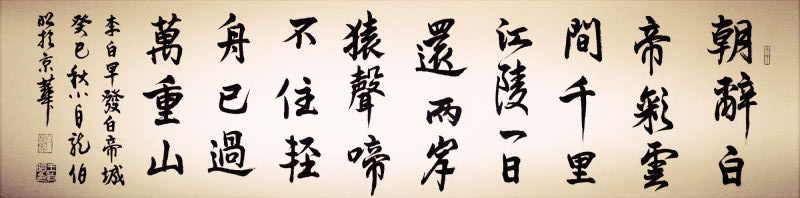 朝辭白
帝彩雲
間千里
江陵一日
還两岸
猿聲啼
不住軽
舟已過
萬重山
李白早發白帝城
癸巳秋 龍伯
於京華